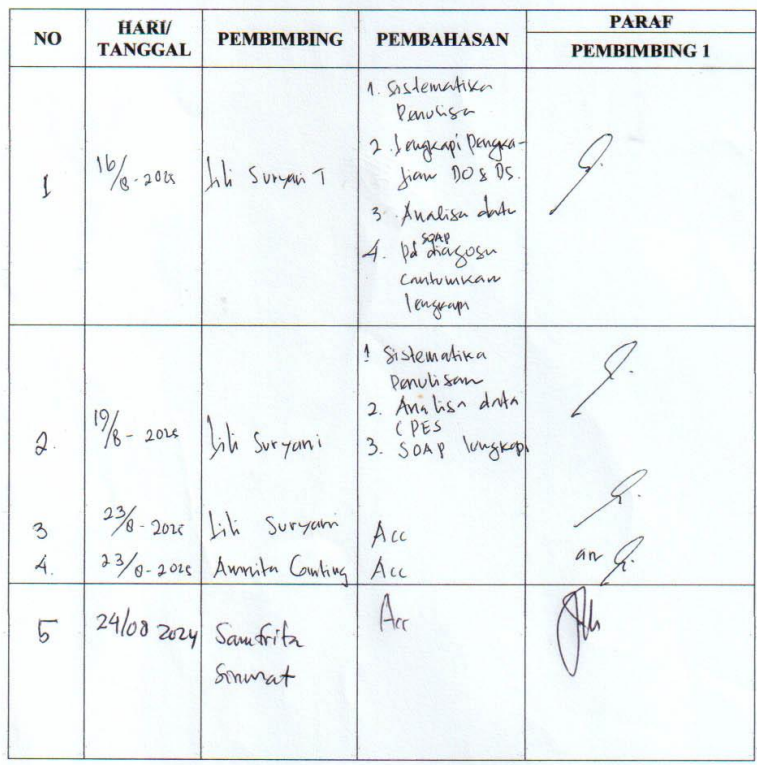 NO HARI/ TANGGAL PEMBIMBING PEMBAHASAN PARAF
PEMBIMBING 1
1 16/8-2025 Lili Suryani T 1. Sistematika
Penulisa
2. Lengkapi Pengka-
jian DO & DS.
3. Analisa data
SOAP
4. Pd diagosa
Cantumkan
lengkap
1 Sistematika
Penulisan
2. Analisa data
(PES
2. 19/8-2025 Lili Suryani 3. SOAP lengkapi
3 23/8-2025 Lili Suryani Acc
4. 23/8-2025 Amnita Ginting Acc an
5 24/08 2024 Samfrita Acc
Sinurat